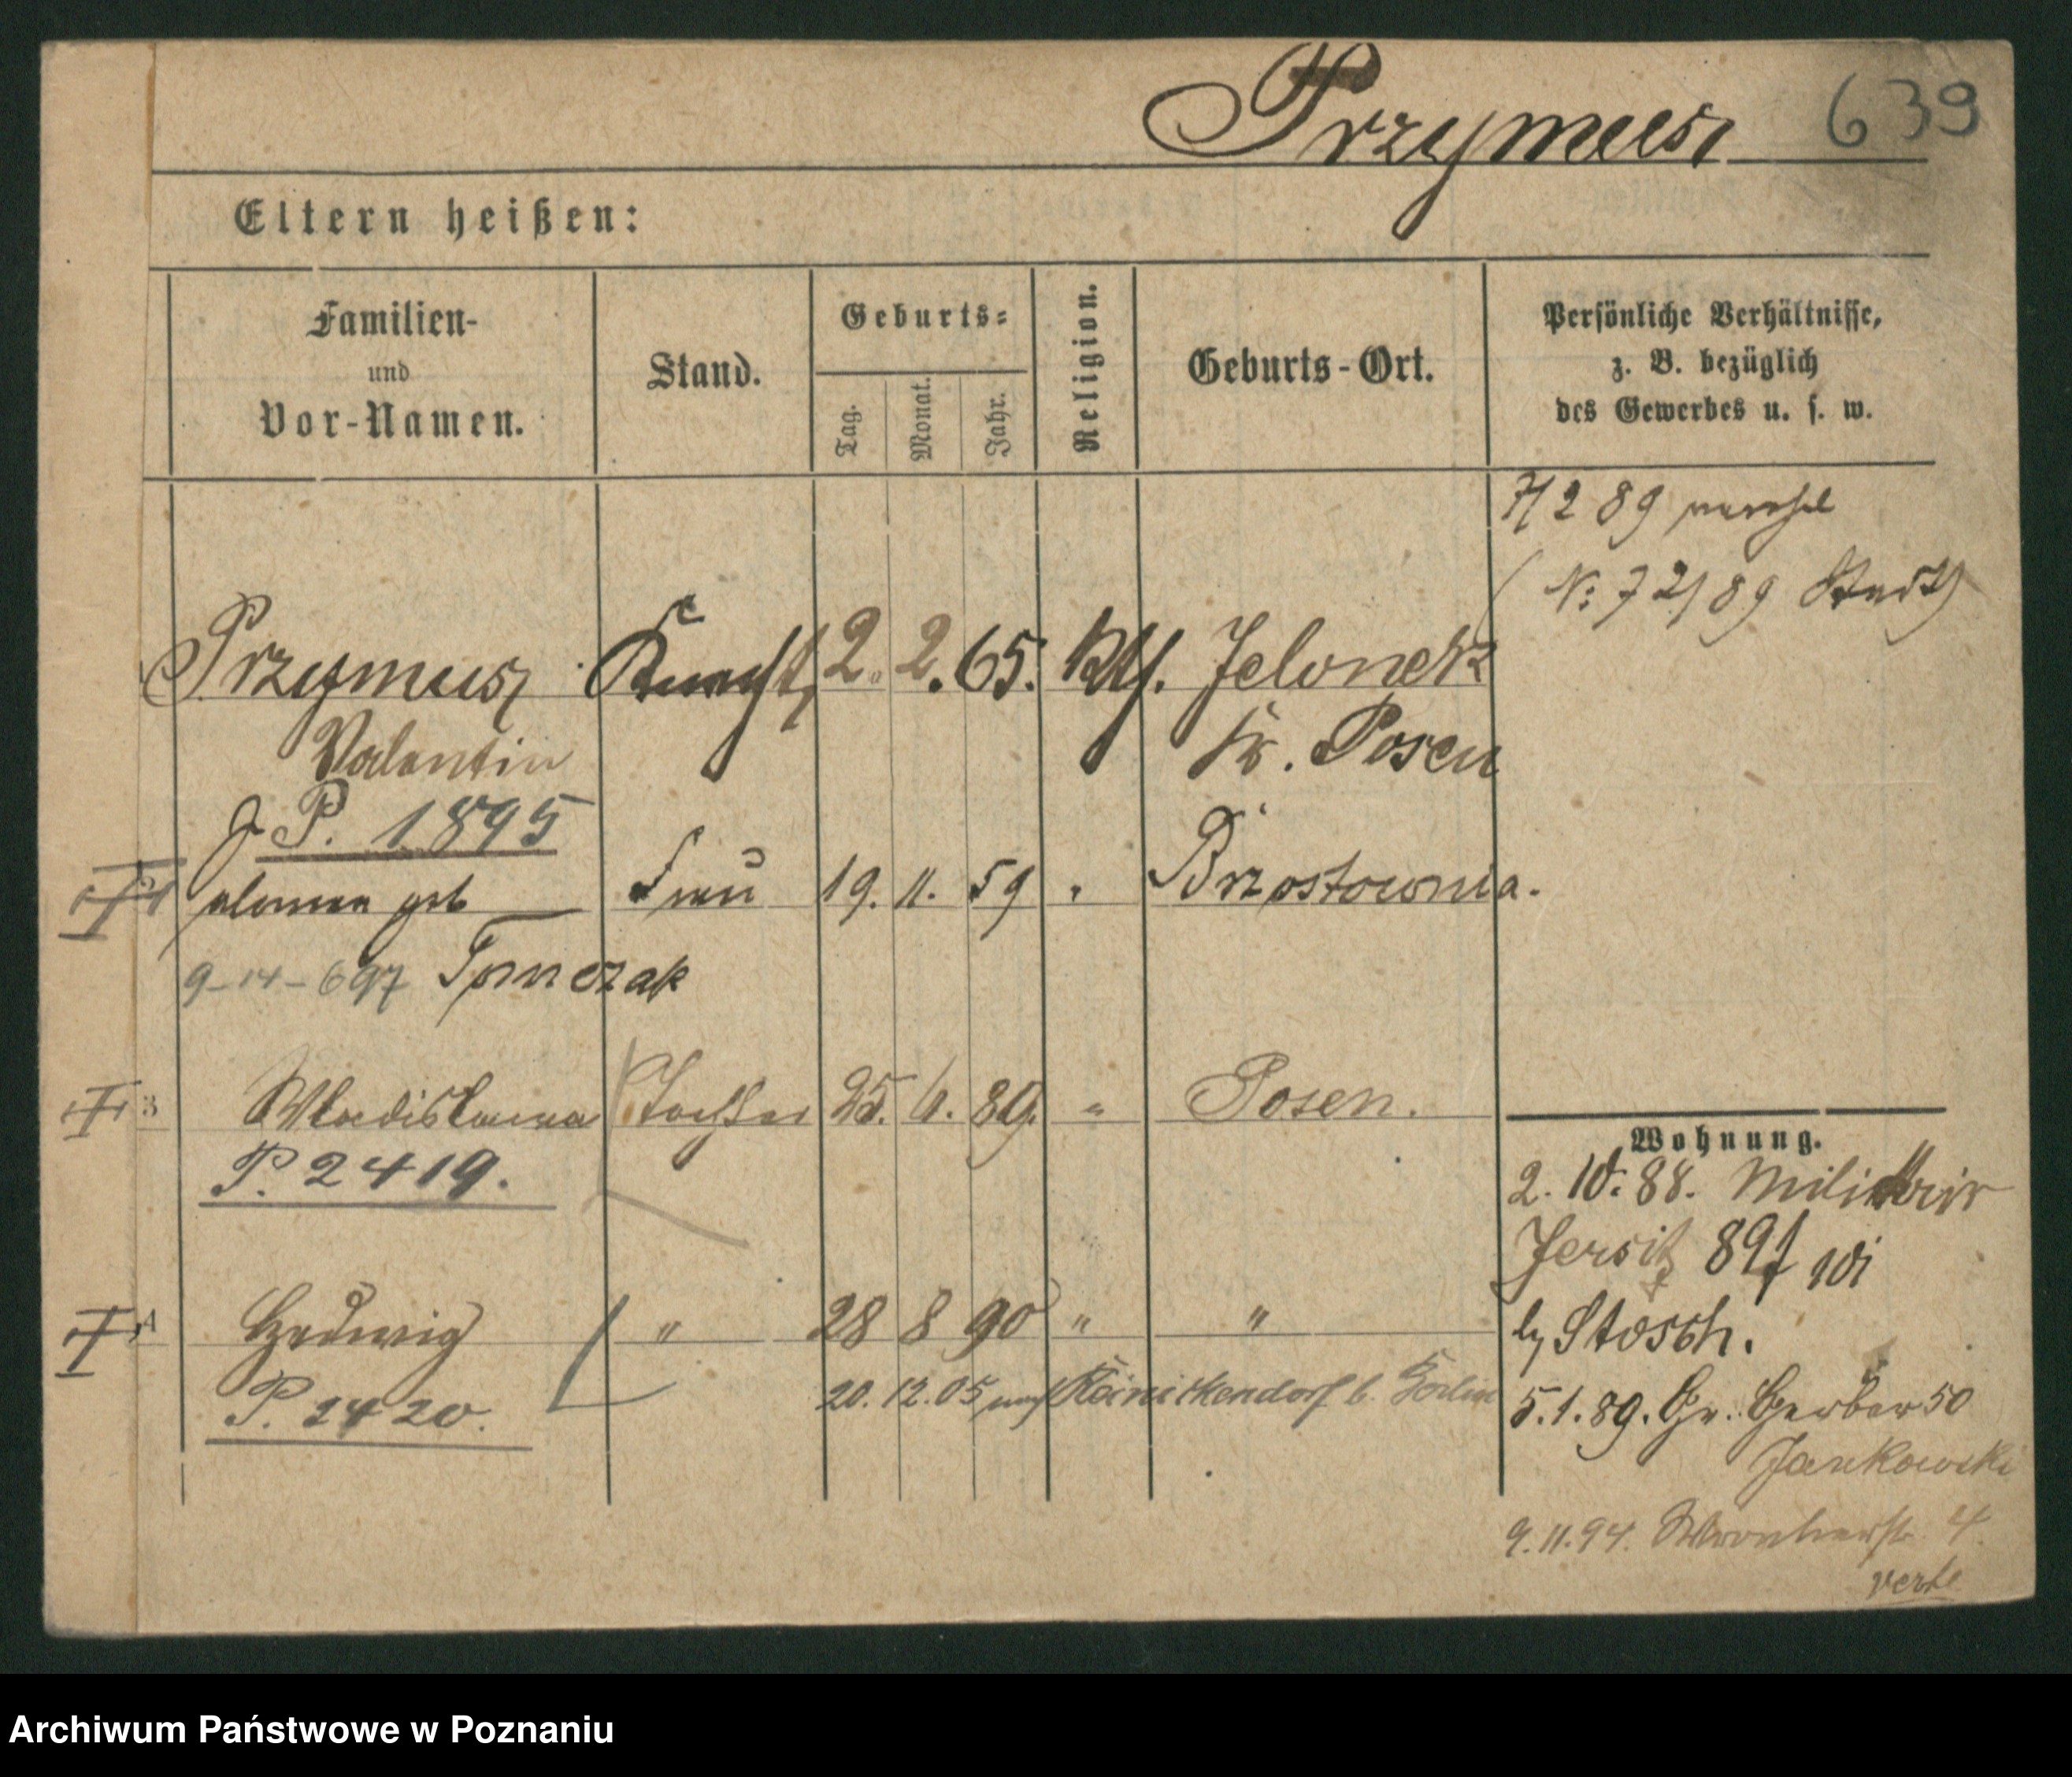 Przymus 639
Eltern heißen:
Familien-
und
Vor-Namen.
Stand.
Geburts-
Tag.
Monat.
Jahr.
Religion.
Geburts-Ort.
Persönliche Verhältnisse,
z. B. bezüglich
des Gewerbes u. s. w.
7/2 89
(N: 72/89 Stadt)
Przymus Knecht 2. 2. 65. kth. Jelonek
Valentin Kr. Posen
P. 1895
geb Frau 19. 11. 59 " Brzostownia.
9-14-697 Tomczak
3 Wladislawa Tochter 25. 6. 89. " Posen.
P. 2419.
Wohnung.
2. 10. 88. Militair
Jersitz 89
by Stosch.
4 Hedwig " 28 8 90 " "
P. 2420.
20. 12. 05 nach Reinickendorf b. Berlin
5. 1. 89. Gr. Gerber 50
Jankowski
9. 11. 94. 4.
verte
Archiwum Państwowe w Poznaniu